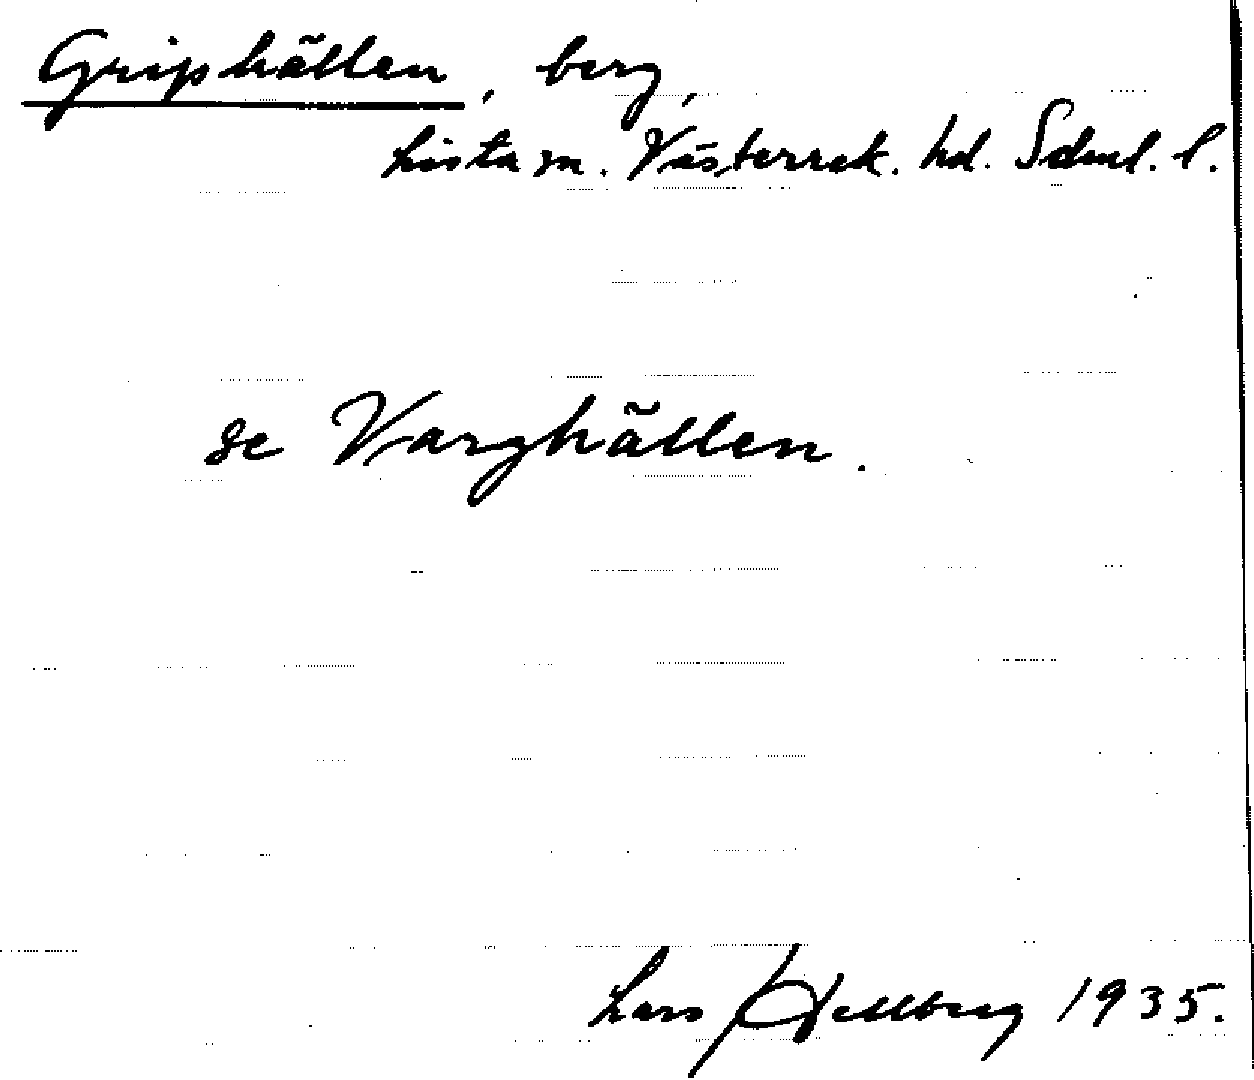 Griphällen, berg,
Lista sn. Västerrek. hd. Söml. l.
se Varghällen.
Lars Hellberg 1935.